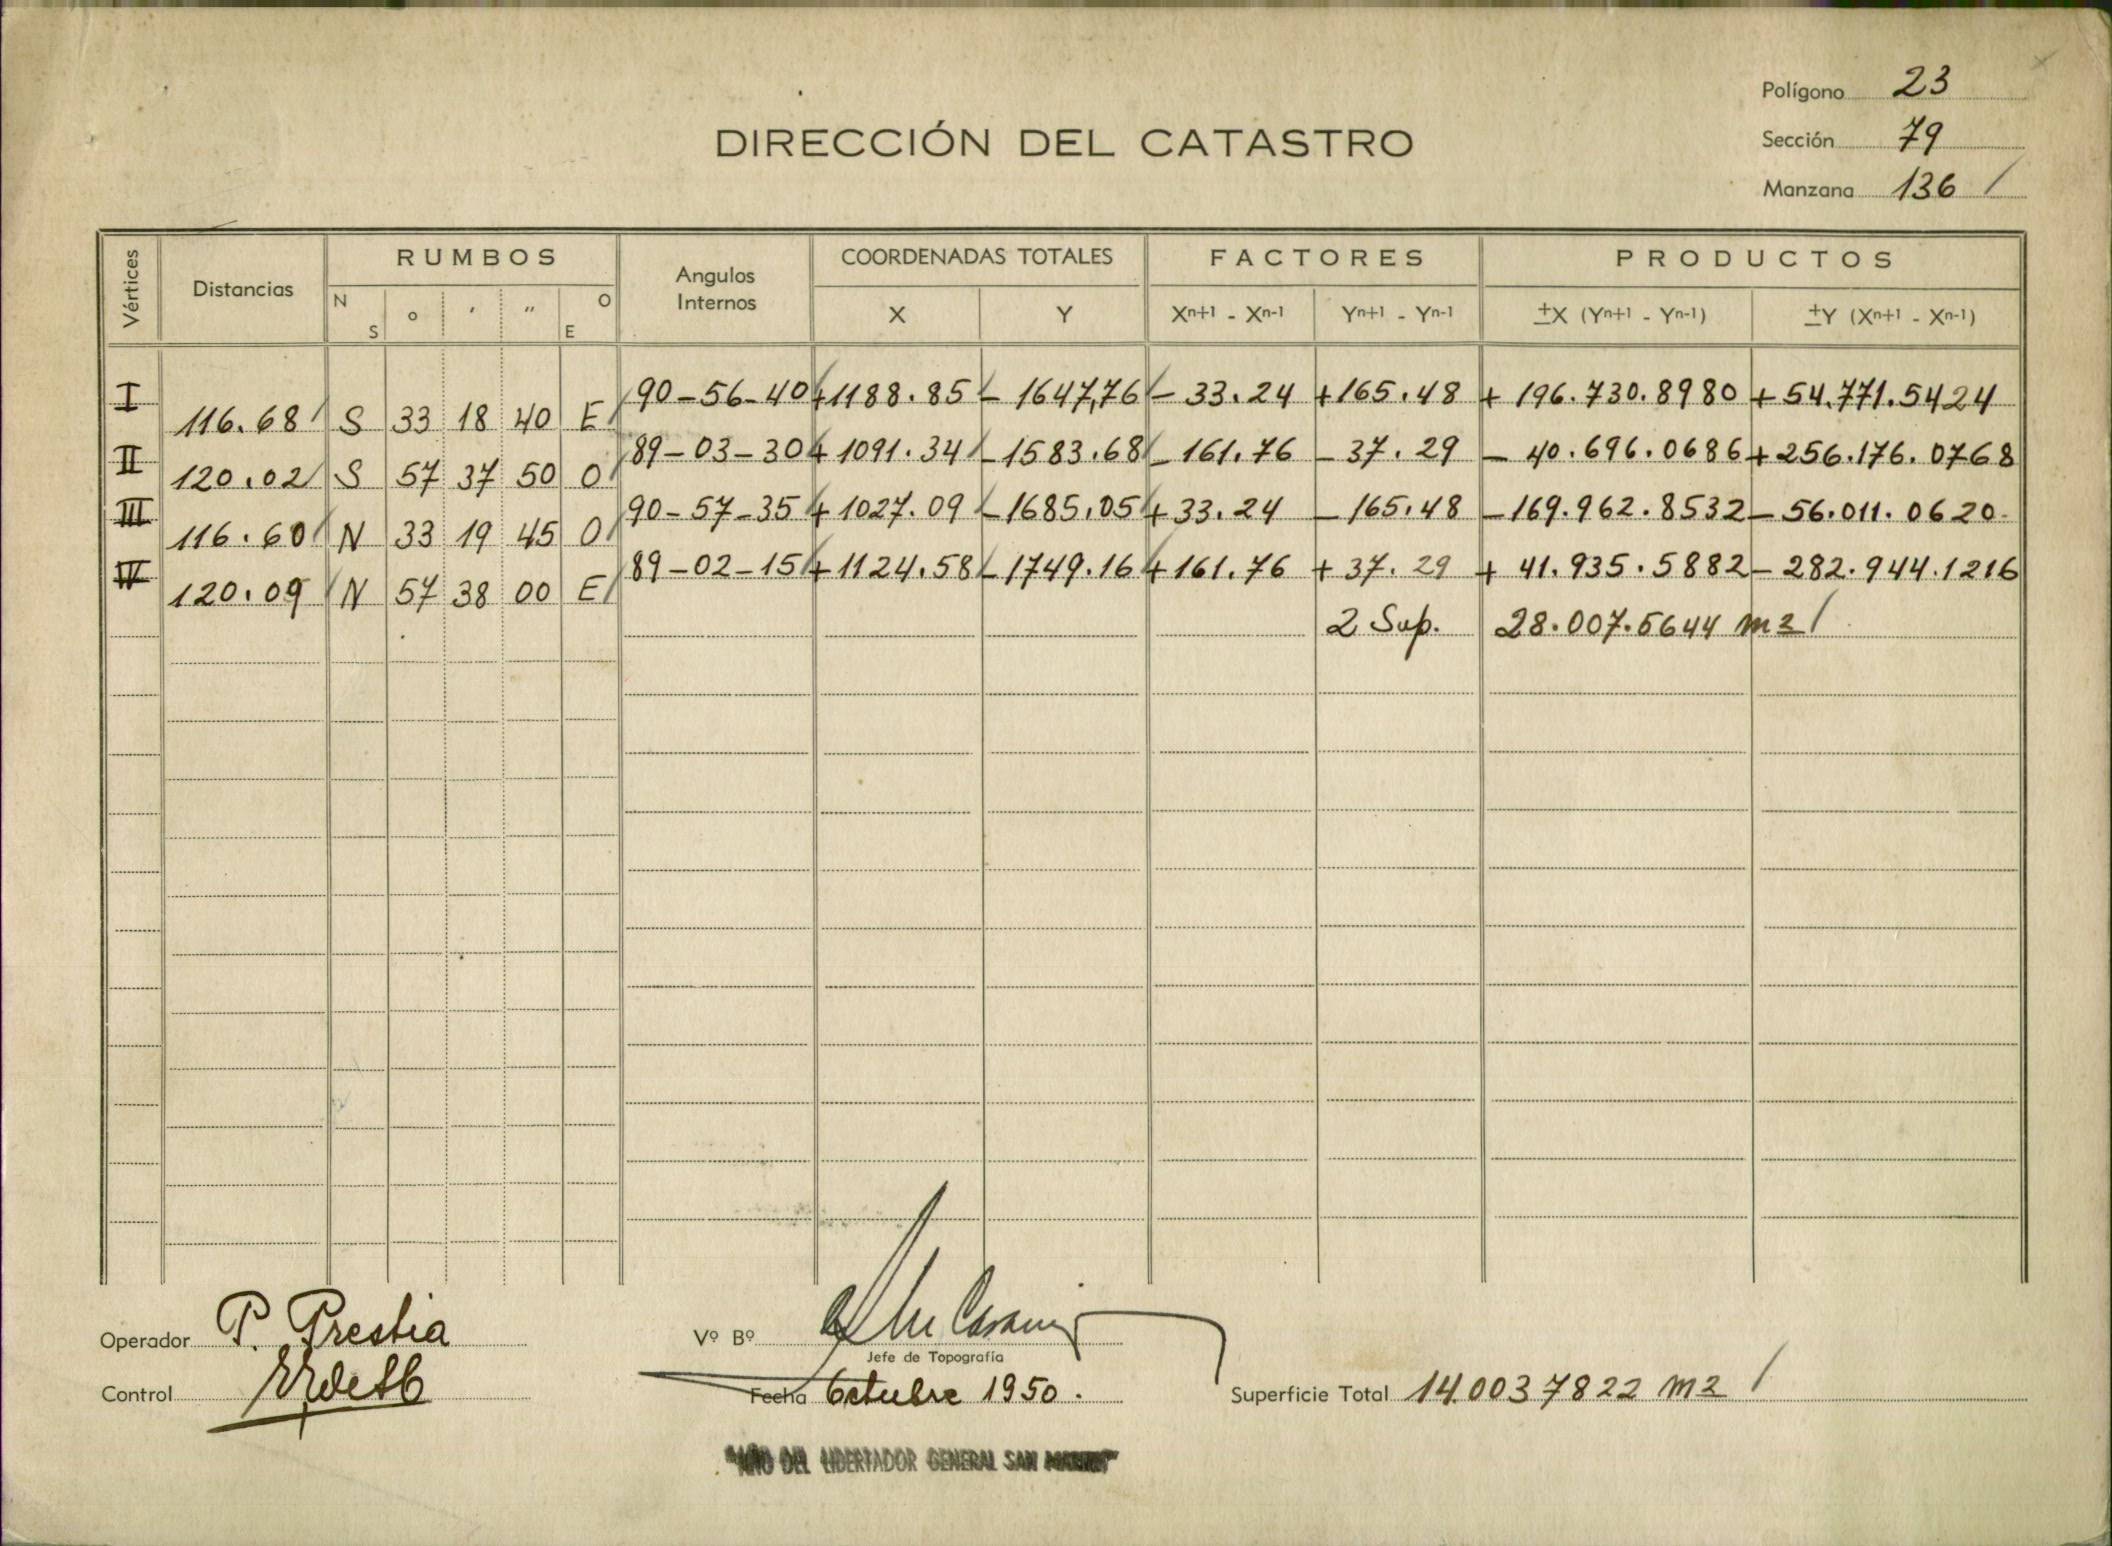 Polígono 23
DIRECCIÓN DEL CATASTRO
Sección 79
Manzana 136 /
Vértices Distancias RUMBOS Angulos Internos COORDENADAS TOTALES FACTORES PRODUCTOS
N S o ' " O E X Y Xn+1 - Xn-1 Yn+1 - Yn-1 ±X (Yn+1 - Yn-1) ±Y (Xn+1 - Xn-1)
I 90-56-40 +1188.85 - 1647,76 - 33.24 +165.48 + 196.730.8980 + 54.771.5424
116.68 S 33 18 40 E
II 89-03-30 + 1091.34 -1583.68 -161.76 - 37.29 - 40.696.0686 +256.176.0768
120.02 S 57 37 50 O
III 90-57-35 + 1027.09 -1685,05 +33.24 -165.48 -169.962.8532 - 56.011.0620
116.60 N 33 19 45 O
IV 89-02-15 +1124.58 -1749.16 +161.76 + 37.29 + 41.935.5882 - 282.944.1216
120.09 N 57 38 00 E
2 Sup. 28.007.5644 m2 /
Operador P. Prestia
Vº Bº
Jefe de Topografía
Control
Fecha Octubre 1950.
Superficie Total 14.0037822 m2 /
"AÑO DEL LIBERTADOR GENERAL SAN MARTIN"